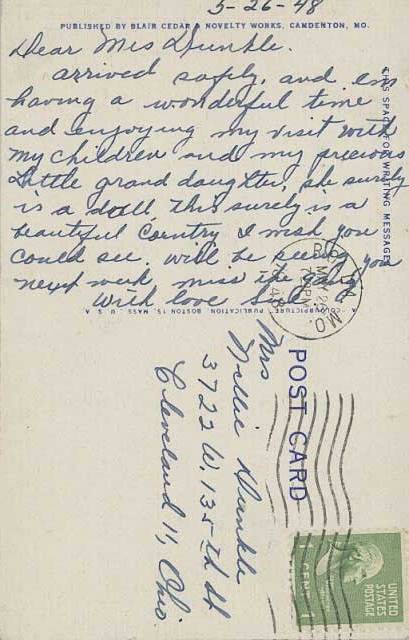 5-26-48
PUBLISHED BY BLAIR CEDAR & NOVELTY WORKS, CAMDENTON, MO.
Dear Mrs Dunkle.
arrived safely, and am
having a wonderful time
and enjoying my visit with
my children and my precious
little grand daughter, she surely
is a doll. This surely is a
beautiful Country I wish you
could see. will be seeing you
next week miss the
With love
THIS SPACE FOR WRITING MESSAGES
PUBLICATION, BOSTON 15, MASS., U. S. A.
POST CARD
Mrs
Nellie Dunkle
3722 W. 135th St
Cleveland 11, Ohio.
MO.
UNITED
STATES
POSTAGE
1 CENT 1